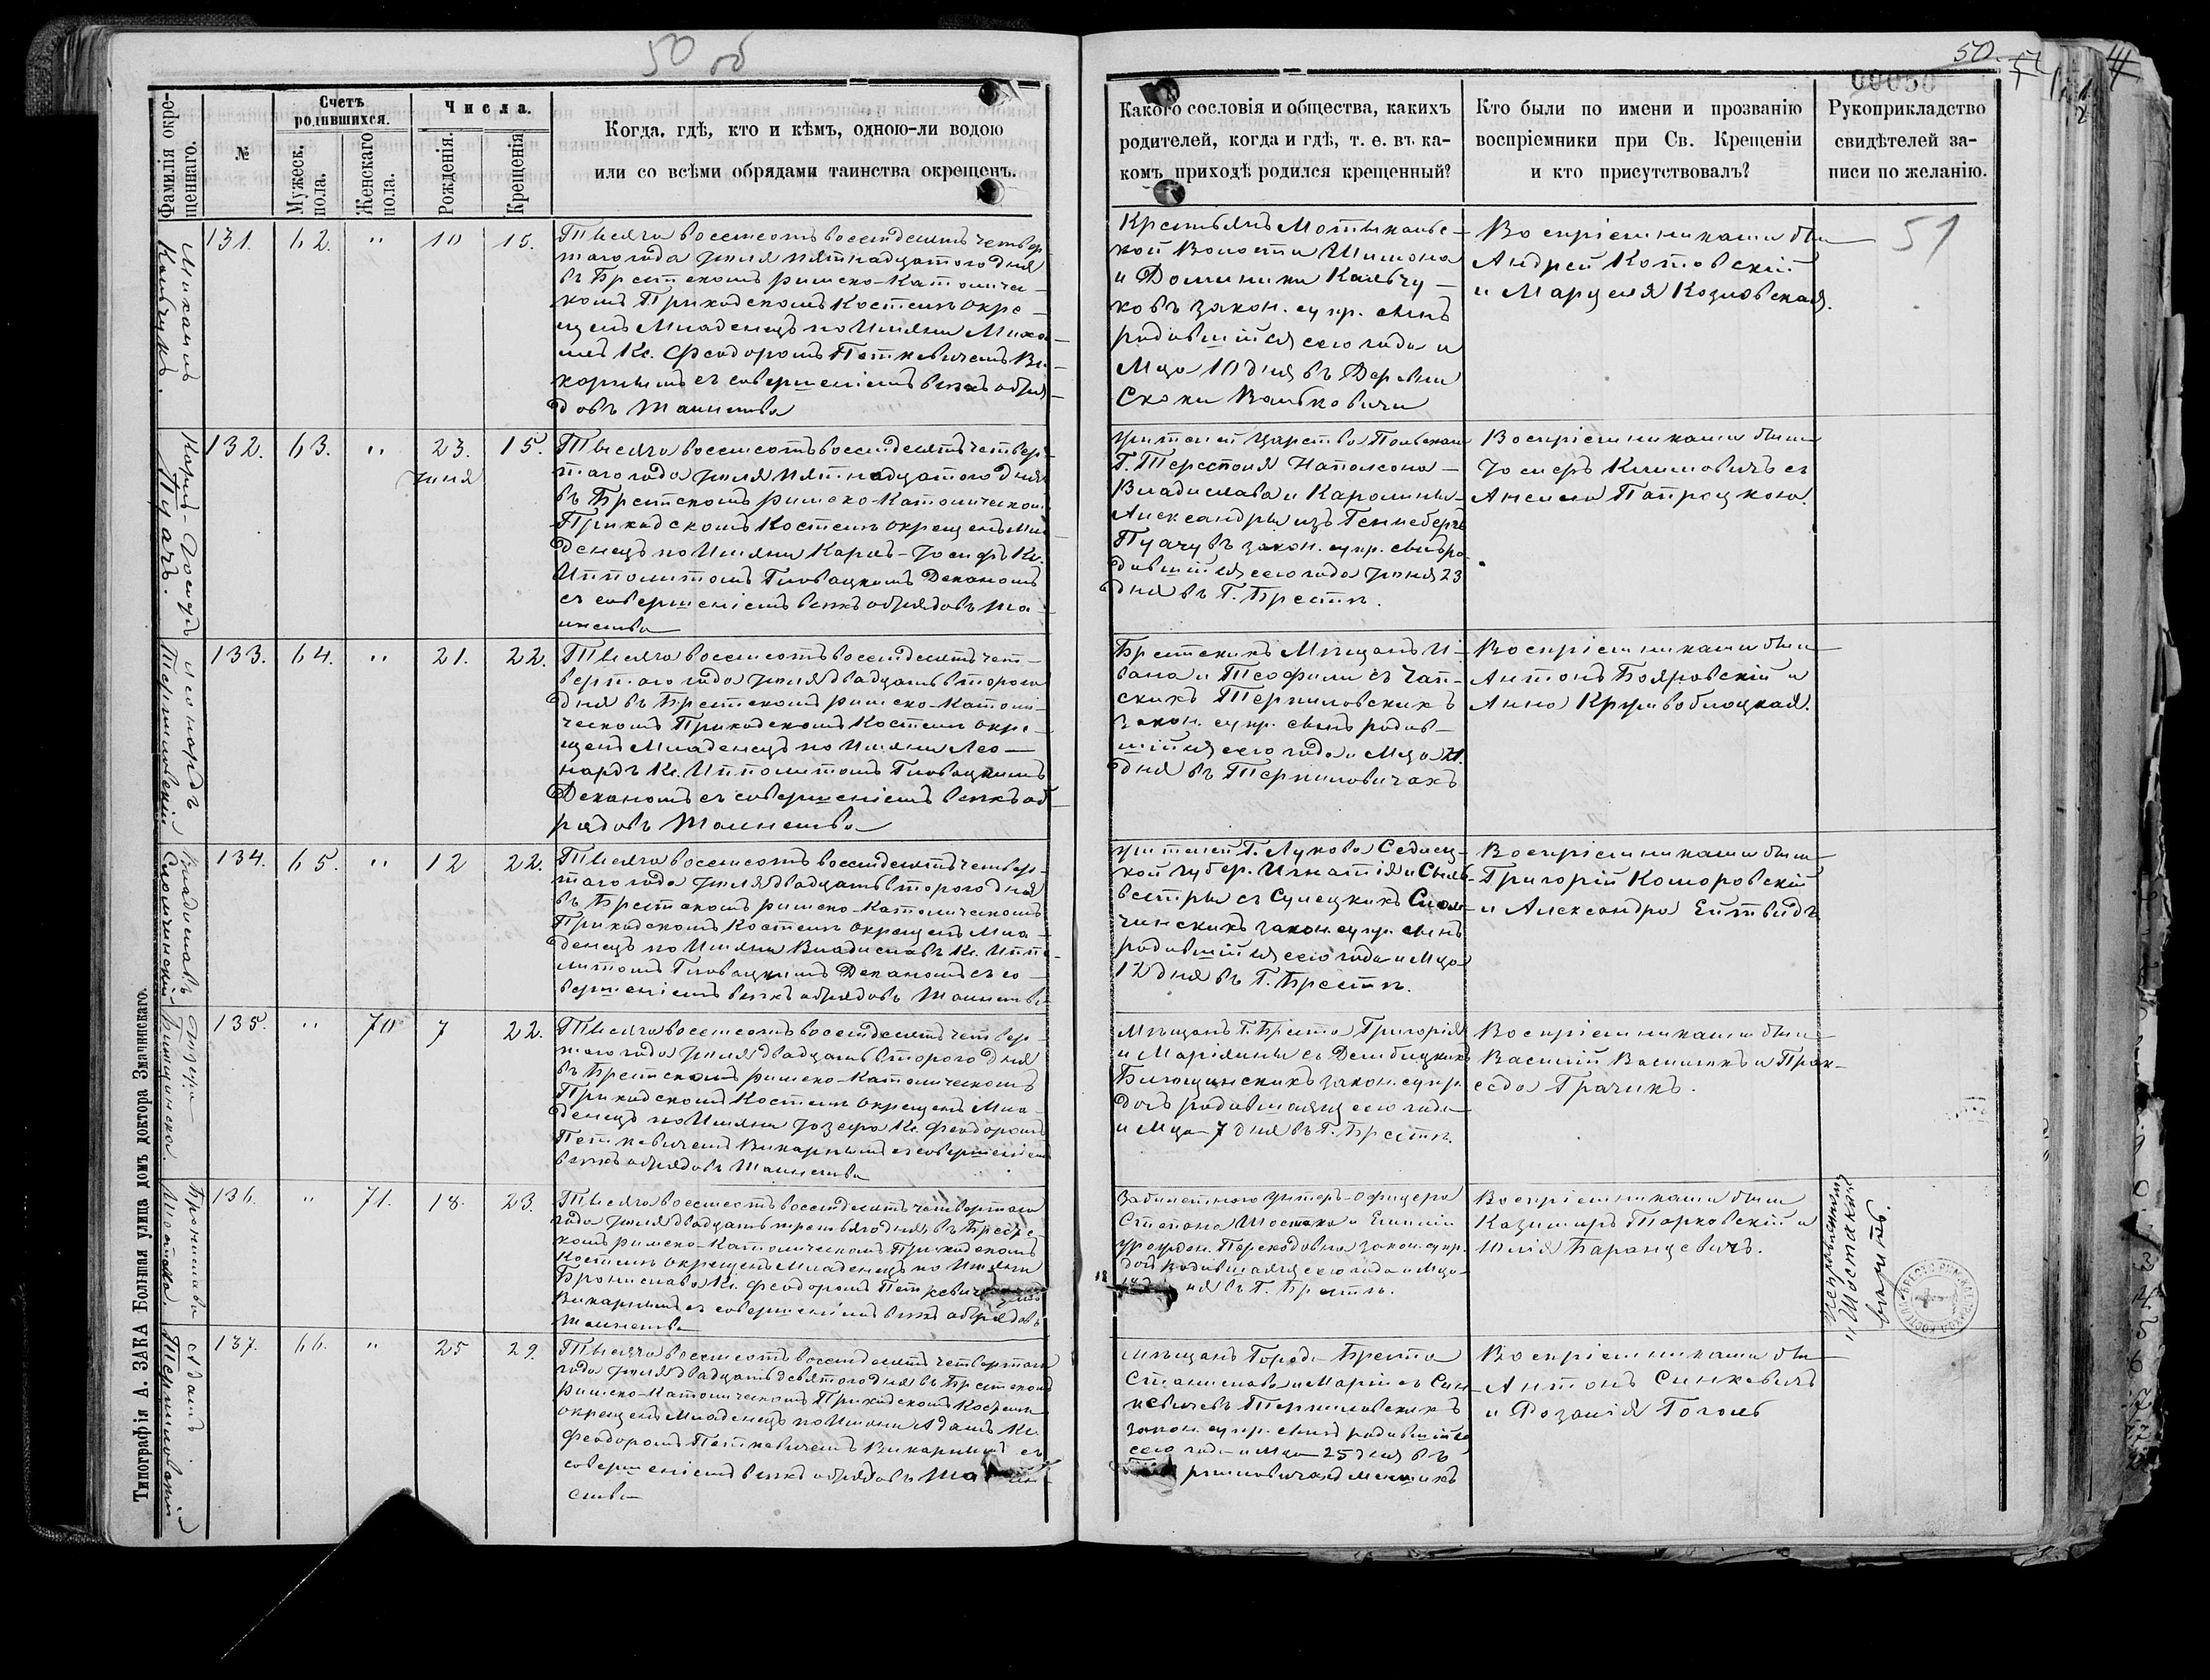 50 об
Фамилія окре-
щеннаго.
№
Счетъ
родившихся.
Мужеск.
пола.
Женскаго
пола.
Числа.
Рожденія.
Крещенія
Когда, гдѣ, кто и кѣмъ, одною-ли водою
или со всѣми обрядами таинства окрещенъ.
Михаилъ
Кальчукъ.
131.
62.
"
10
15.
Тысяча восемсотъ восемдесятъ четвер-
таго года Іюля пятнадцатого дня
въ Брестскомъ римско-Католичес-
комъ Приходскомъ Костелѣ окре-
щенъ Младенецъ по Имяни Миха-
илъ Кс. Феодоромъ Петкевичемъ Ви-
карнымъ съ совершеніемъ всѣхъ обря-
довъ Таинства
Карлъ-Іосифъ
Пуачъ.
132.
63.
"
23.
Іюня
15.
Тысяча восемсотъ восемдесятъ четвер-
таго года Іюля пятнадцатого дня
въ Брестскомъ римско-Католическом
Приходскомъ Костелѣ окрещенъ Мла
денецъ по Имяни Карлъ-Іосифъ Кс.
Ипполитомъ Гловацкимъ Деканомъ
съ совершеніемъ всѣхъ обрядовъ Та-
инства
Леонардъ
Терпиловскій
133.
64.
"
21.
22.
Тысяча восемсотъ восемдесятъ чет-
вертаго года Іюля двадцать второго
дня въ Брестскомъ римско-Католи-
ческомъ Приходскомъ Костелѣ окре-
щенъ Младенецъ по Имяни Лео-
нардъ Кс. Ипполитомъ Гловацкимъ
Деканомъ съ совершеніемъ всѣхъ об-
рядовъ Таинства
Владиславъ
134.
65.
"
12
22.
Тысяча восемсотъ восемдесятъ четвер-
таго года Іюля двадцать второго дня
въ Брестскомъ римско-Католическомъ
Приходскомъ Костелѣ окрещенъ Мла-
денецъ по Имяни Владиславъ Кс. Иппо-
литомъ Гловацкимъ Деканомъ съ со-
вершеніемъ всѣхъ обрядовъ Таинства
Іозефа
135.
"
70
7
22.
Тысяча восемсотъ восемдесятъ четвер-
таго года Іюля двадцать второго дня
въ Брестскомъ римско-Католическомъ
Приходскомъ Костелѣ окрещенъ Мла-
денецъ по Имяни Іозефа Кс. Феодоромъ
Петкевичемъ Викарнымъ съ совершеніемъ
всѣхъ обрядовъ Таинства
Бронислава
Шостака.
136.
"
71.
18.
23.
Тысяча восемсотъ восемдесятъ четвертаго
года Іюля двадцать третьяго дня въ Брестс-
комъ римско-Католическомъ Приходскомъ
Костелѣ окрещенъ Младенецъ по Имяни
Бронислава Кс. Феодоромъ Петкевич
Викарнымъ съ совершеніемъ всѣхъ обрядовъ
Таинства
Адамъ
Терпиловскій
137.
66.
"
25
29.
Тысяча восемсотъ восемдесятъ четвертаго
года Іюля двадцать девятого дня въ Брестскомъ
римско-Католическомъ Приходскомъ Костелѣ
окрещенъ Младенецъ по Имяни Адамъ Кс.
Феодоромъ Петкевичемъ Викарнымъ съ
совершеніемъ всѣхъ обрядовъ Таин
ства
Типографія А. ЗАКА Большая улица домъ доктора Змачинскаго.
50.
00050
Какого сословія и общества, какихъ
родителей, когда и гдѣ, т. е. въ ка-
комъ приходѣ родился крещенный?
Кто были по имени и прозванію
воспріемники при Св. Крещеніи
и кто присутствовалъ?
Рукоприкладство
свидѣтелей за-
писи по желанію.
51
Крестьянъ Мотыкальс-
кой Волости Шимона
и Доминики Кальчу-
ковъ закон. супр. сынъ
родившійся сего года и
Мца 10 дня въ Деревни
Скоки Вацковичи
Воспріемниками бы-
Андрей Котовскій
и Марцеля Козловская.
Учителей Царства Польскаго
Г. Наполеона-
Владислава и Каролины-
Александры изъ Геннеберг
Пуачу въ закон. супр. сынъ ро-
дившійся сего года Іюня 23
дня въ Г. Брестѣ.
Воспріемниками были
Іосифъ Климовичъ съ
Анелею Папроцкою.
Брестскихъ Мѣщанъ И-
вана и Теофили съ Чап-
скихъ Терпиловскихъ
закон. супр. сынъ родив-
шійся сего года и Мца 21.
дня въ Терпиловичахъ
Воспріемниками бы-
Антонъ Бояровскій и
Анна Кривоблоцкая.
Г. Лукова Седлец-
кой губер. Игнатія и Силь-
вестры съ Сулецкихъ Слом-
чинскихъ закон. супр. сынъ
родившійся сего года и Мца
12 дня въ Г. Брестѣ.
Воспріемниками были
Григорій Коморовскій
и Александра Ейтвидъ
Мѣщанъ Г. Бреста Григорія
и Маріянны съ Дембицкихъ
закон. супр.
дочь родившаяся сего года
и Мца 7 дня въ Г. Брестѣ.
Воспріемниками были
Василій Василюкъ и Прак-
седа Грачикъ.
Забилетного Унтеръ-офицера
Степана Шостака и Емиліи
урожден. закон. супр.
дочь родившаяся сего года и Мца
18 ня въ Г. Брестѣ.
Воспріемниками были
Казимиръ Тарковскій и
Юлія Баранцевичъ.
"Шостака"
вѣрить.
Мѣщанъ Города Бреста
Станислава и Маріи съ Син-
кевичевъ Терпиловскихъ
закон. супр. сынъ родившійся
сего года и Мца 25 дня въ
рпиловичахъ
Воспріемниками бы-
Антонъ Синкевичъ
и Розалія Гоголь